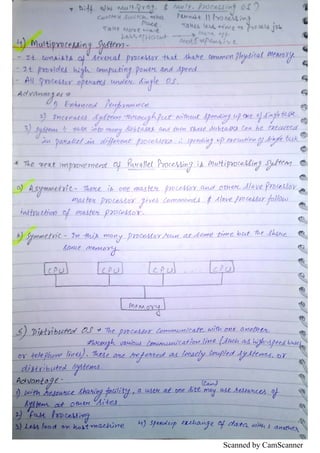 * Diff b/w Multi Prog. & Multi. Processing OS?
Context Switch used
Permit || Processing
Takes more time
Takes less time to Process job
Less efficient
More eff.
Most Expensive
4) Multiprocessing System -
- It consists of several processor that share common Physical Memory.
- It provides high computing Power and speed.
- All processor operates under single OS.
Advantages
1) Enhanced Performance
2) Processes Systems through put without speeding up exe of single task
3) System task into many subtasks and then these subtasks can be executed
in parallel in different processors. i.e. speeding up execution of single task
* The next improvement of Parallel Processing is Multiprocessing System.
a) Asymmetric - There is one master processor and other Slave Processor
master processor gives Commands & slave processor follow
instruction of master processor.
b) Symmetric - In this many processor run at same time but the share
same memory.
CPU CPU CPU ... CPU
Memory
5) Distributed OS * The processor communicate with one another
through various communication line (such as high-speed buses
or telephone lines). These are referred as loosely coupled systems or
distributed systems.
Advantage -
1) with resource sharing facility, a user at one site may use resources of
System at other sites
2) fast Processing
3) Less load on host machine 4) speedup exchange of data with 1 another
Scanned by CamScanner